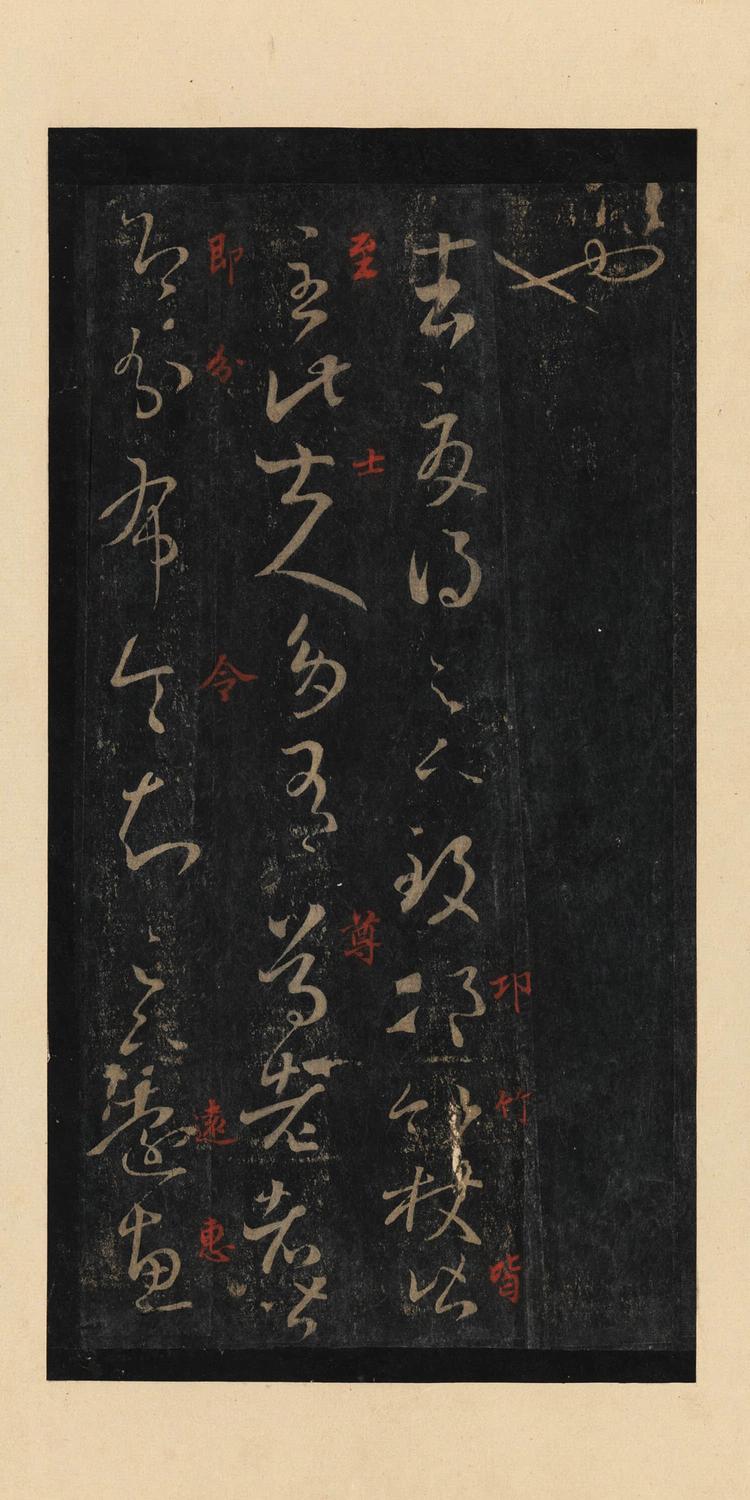 也
去夏得足下致邛竹杖皆
邛 竹 皆
至此士人多有尊老者皆
至 士 尊
即分布令知足下遠惠
即 分 令 遠 惠